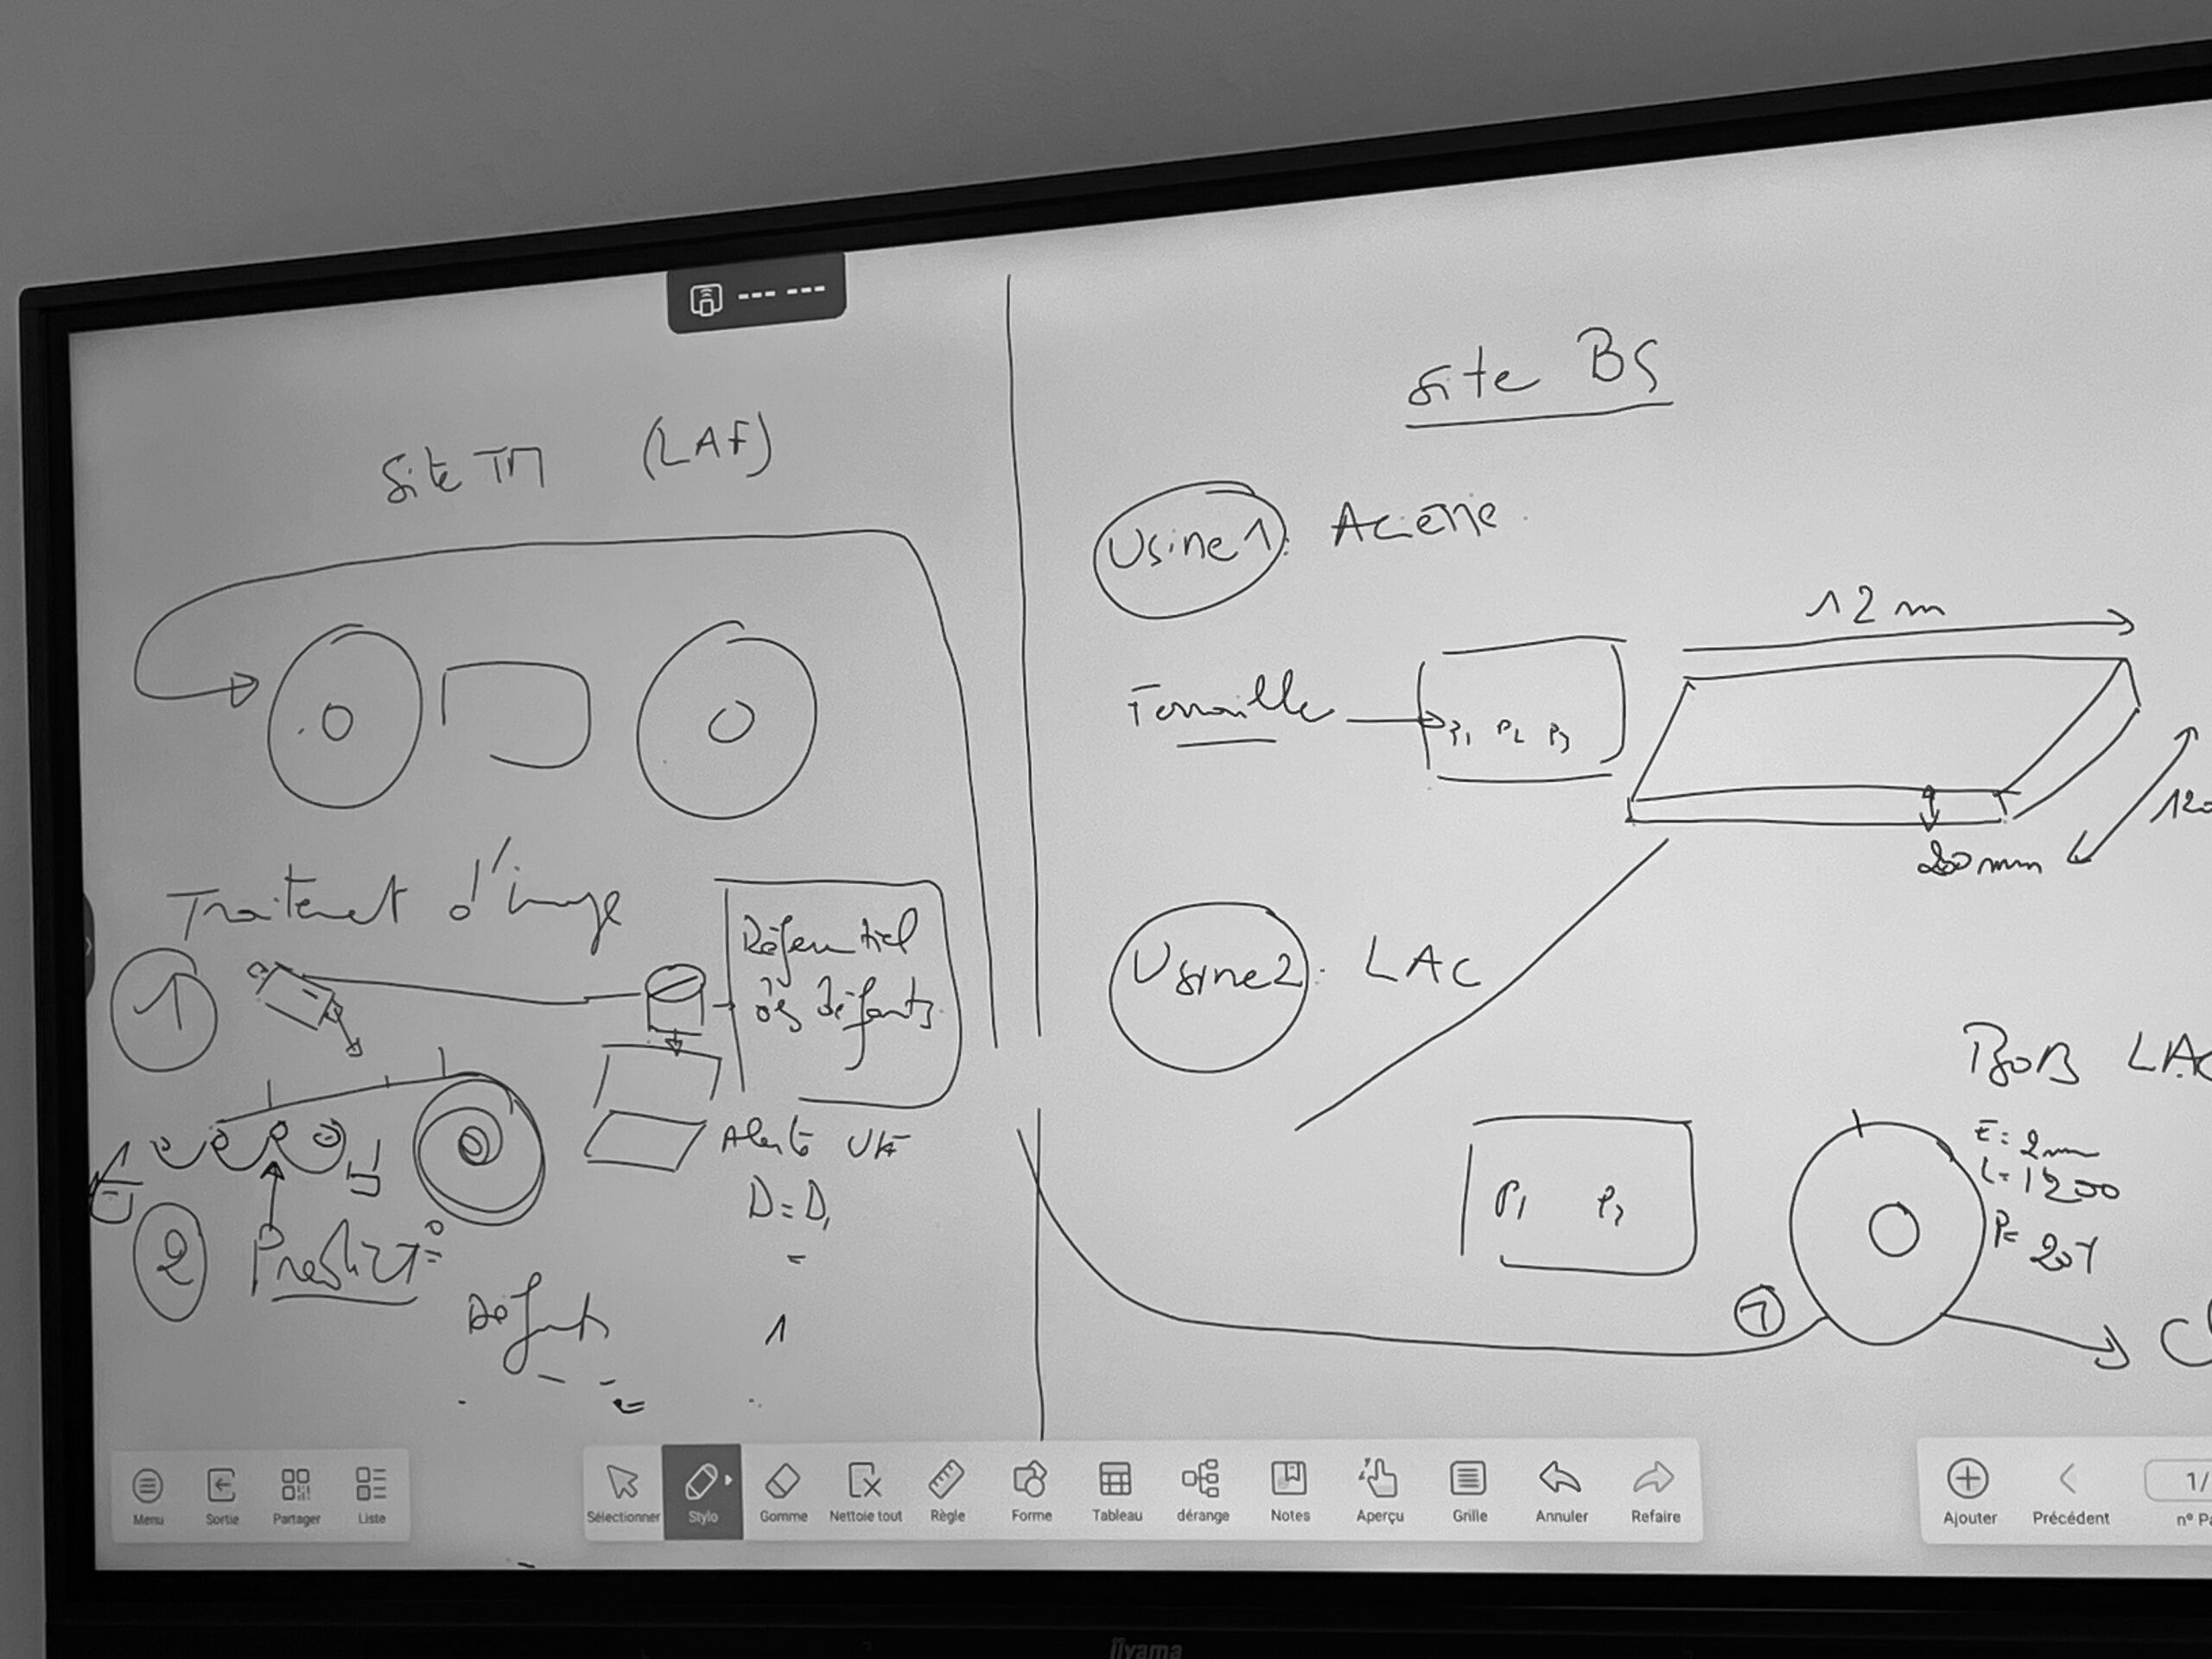 Site TM (LAF)
Traitement d'image
1
Référentiel
des défauts
Alerte
D=D1
2
Défauts
1
site BS
Usine 1: Aciérie
12 m
Ferraille
P1 P2 P3
200mm
Usine 2: LAC
BOB LAC
E=2mm
L=1200
P=20T
P1 P2
Menu
Sortie
Partager
Liste
Sélectionner
Stylo
Gomme
Nettoie tout
Règle
Forme
Tableau
dérange
Notes
Aperçu
Grille
Annuler
Refaire
Ajouter
Précédent
1/
iiyama